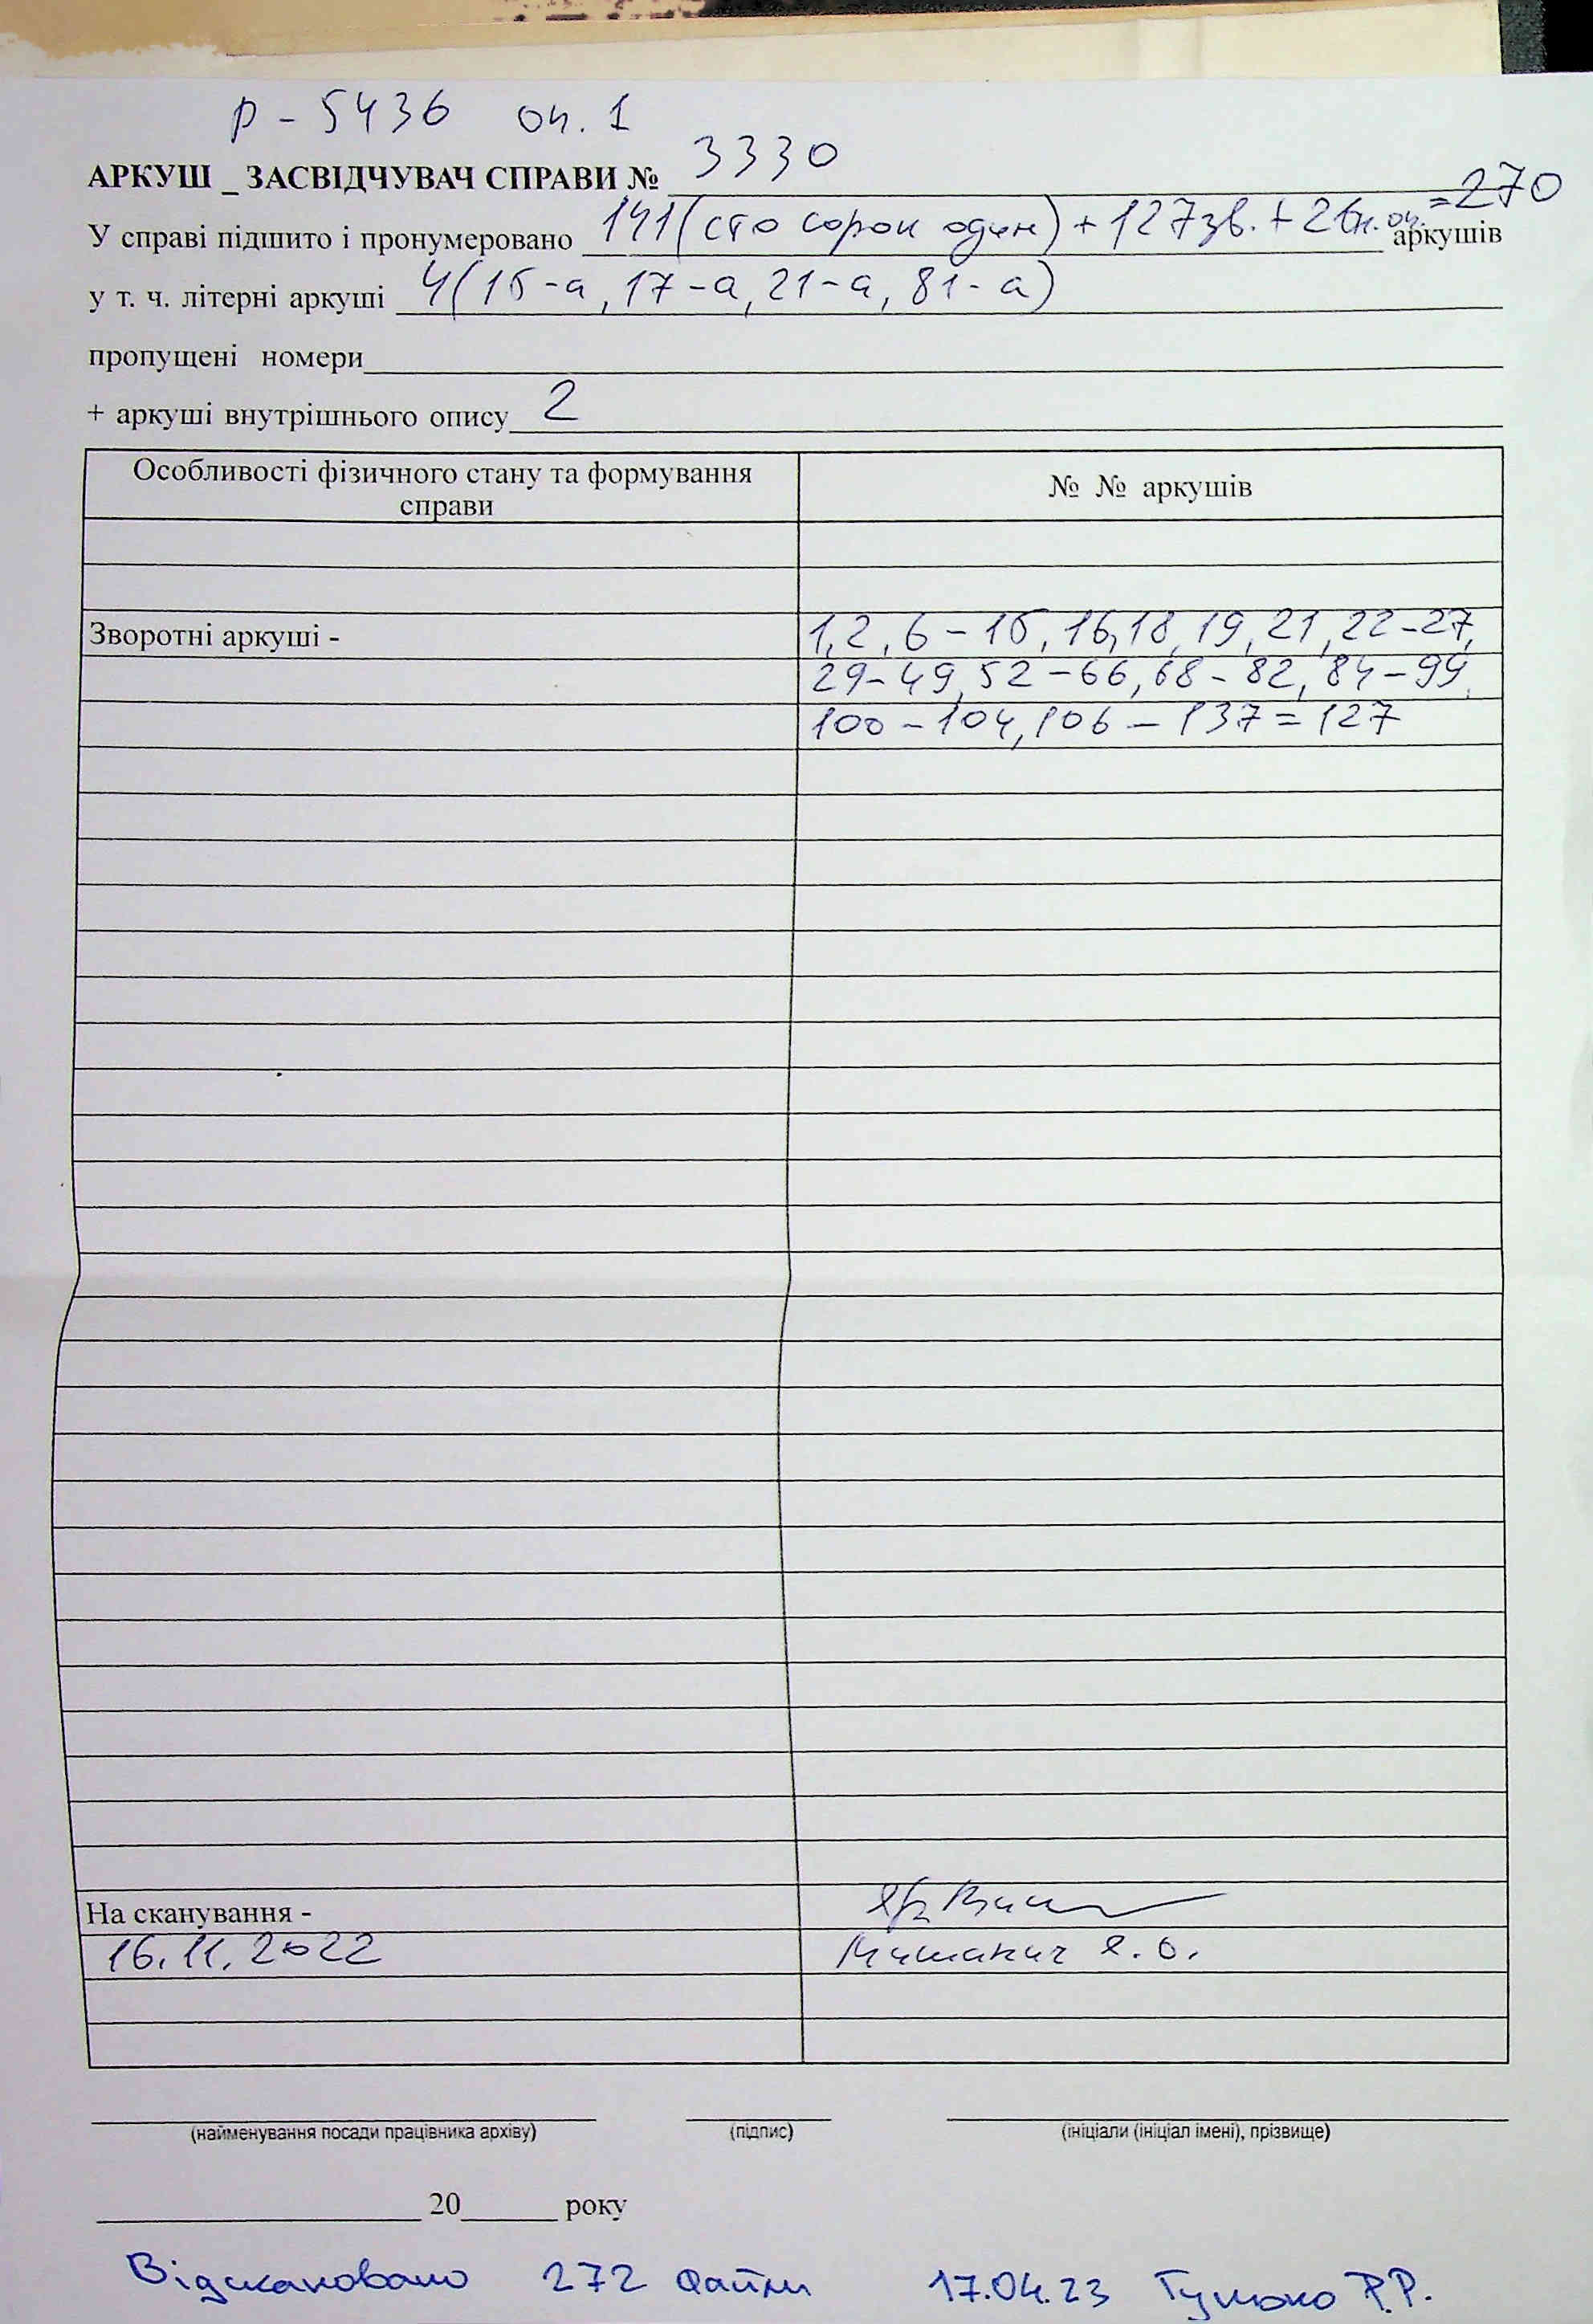 р - 5436 оп. 1
АРКУШ _ ЗАСВІДЧУВАЧ СПРАВИ № 3330
У справі підшито і пронумеровано 141 (сто сорок один) + 127 зв. + 2 вн. оп. = 270 аркушів
у т. ч. літерні аркуші 4 (15-а, 17-а, 21-а, 81-а)
пропущені номери
+ аркуші внутрішнього опису 2
Особливості фізичного стану та формування справи
№ № аркушів
Зворотні аркуші - 1, 2, 6 – 15, 16, 18, 19, 21, 22 – 27,
29 – 49, 52 – 66, 68 – 82, 84 – 99,
100 – 104, 106 – 137 = 127
На сканування -
16.11.2022 Я. О.
(найменування посади працівника архіву) (підпис) (ініціали (ініціал імені), прізвище)
20 року
Відскановано 272 файли 17.04.23 Р.Р.